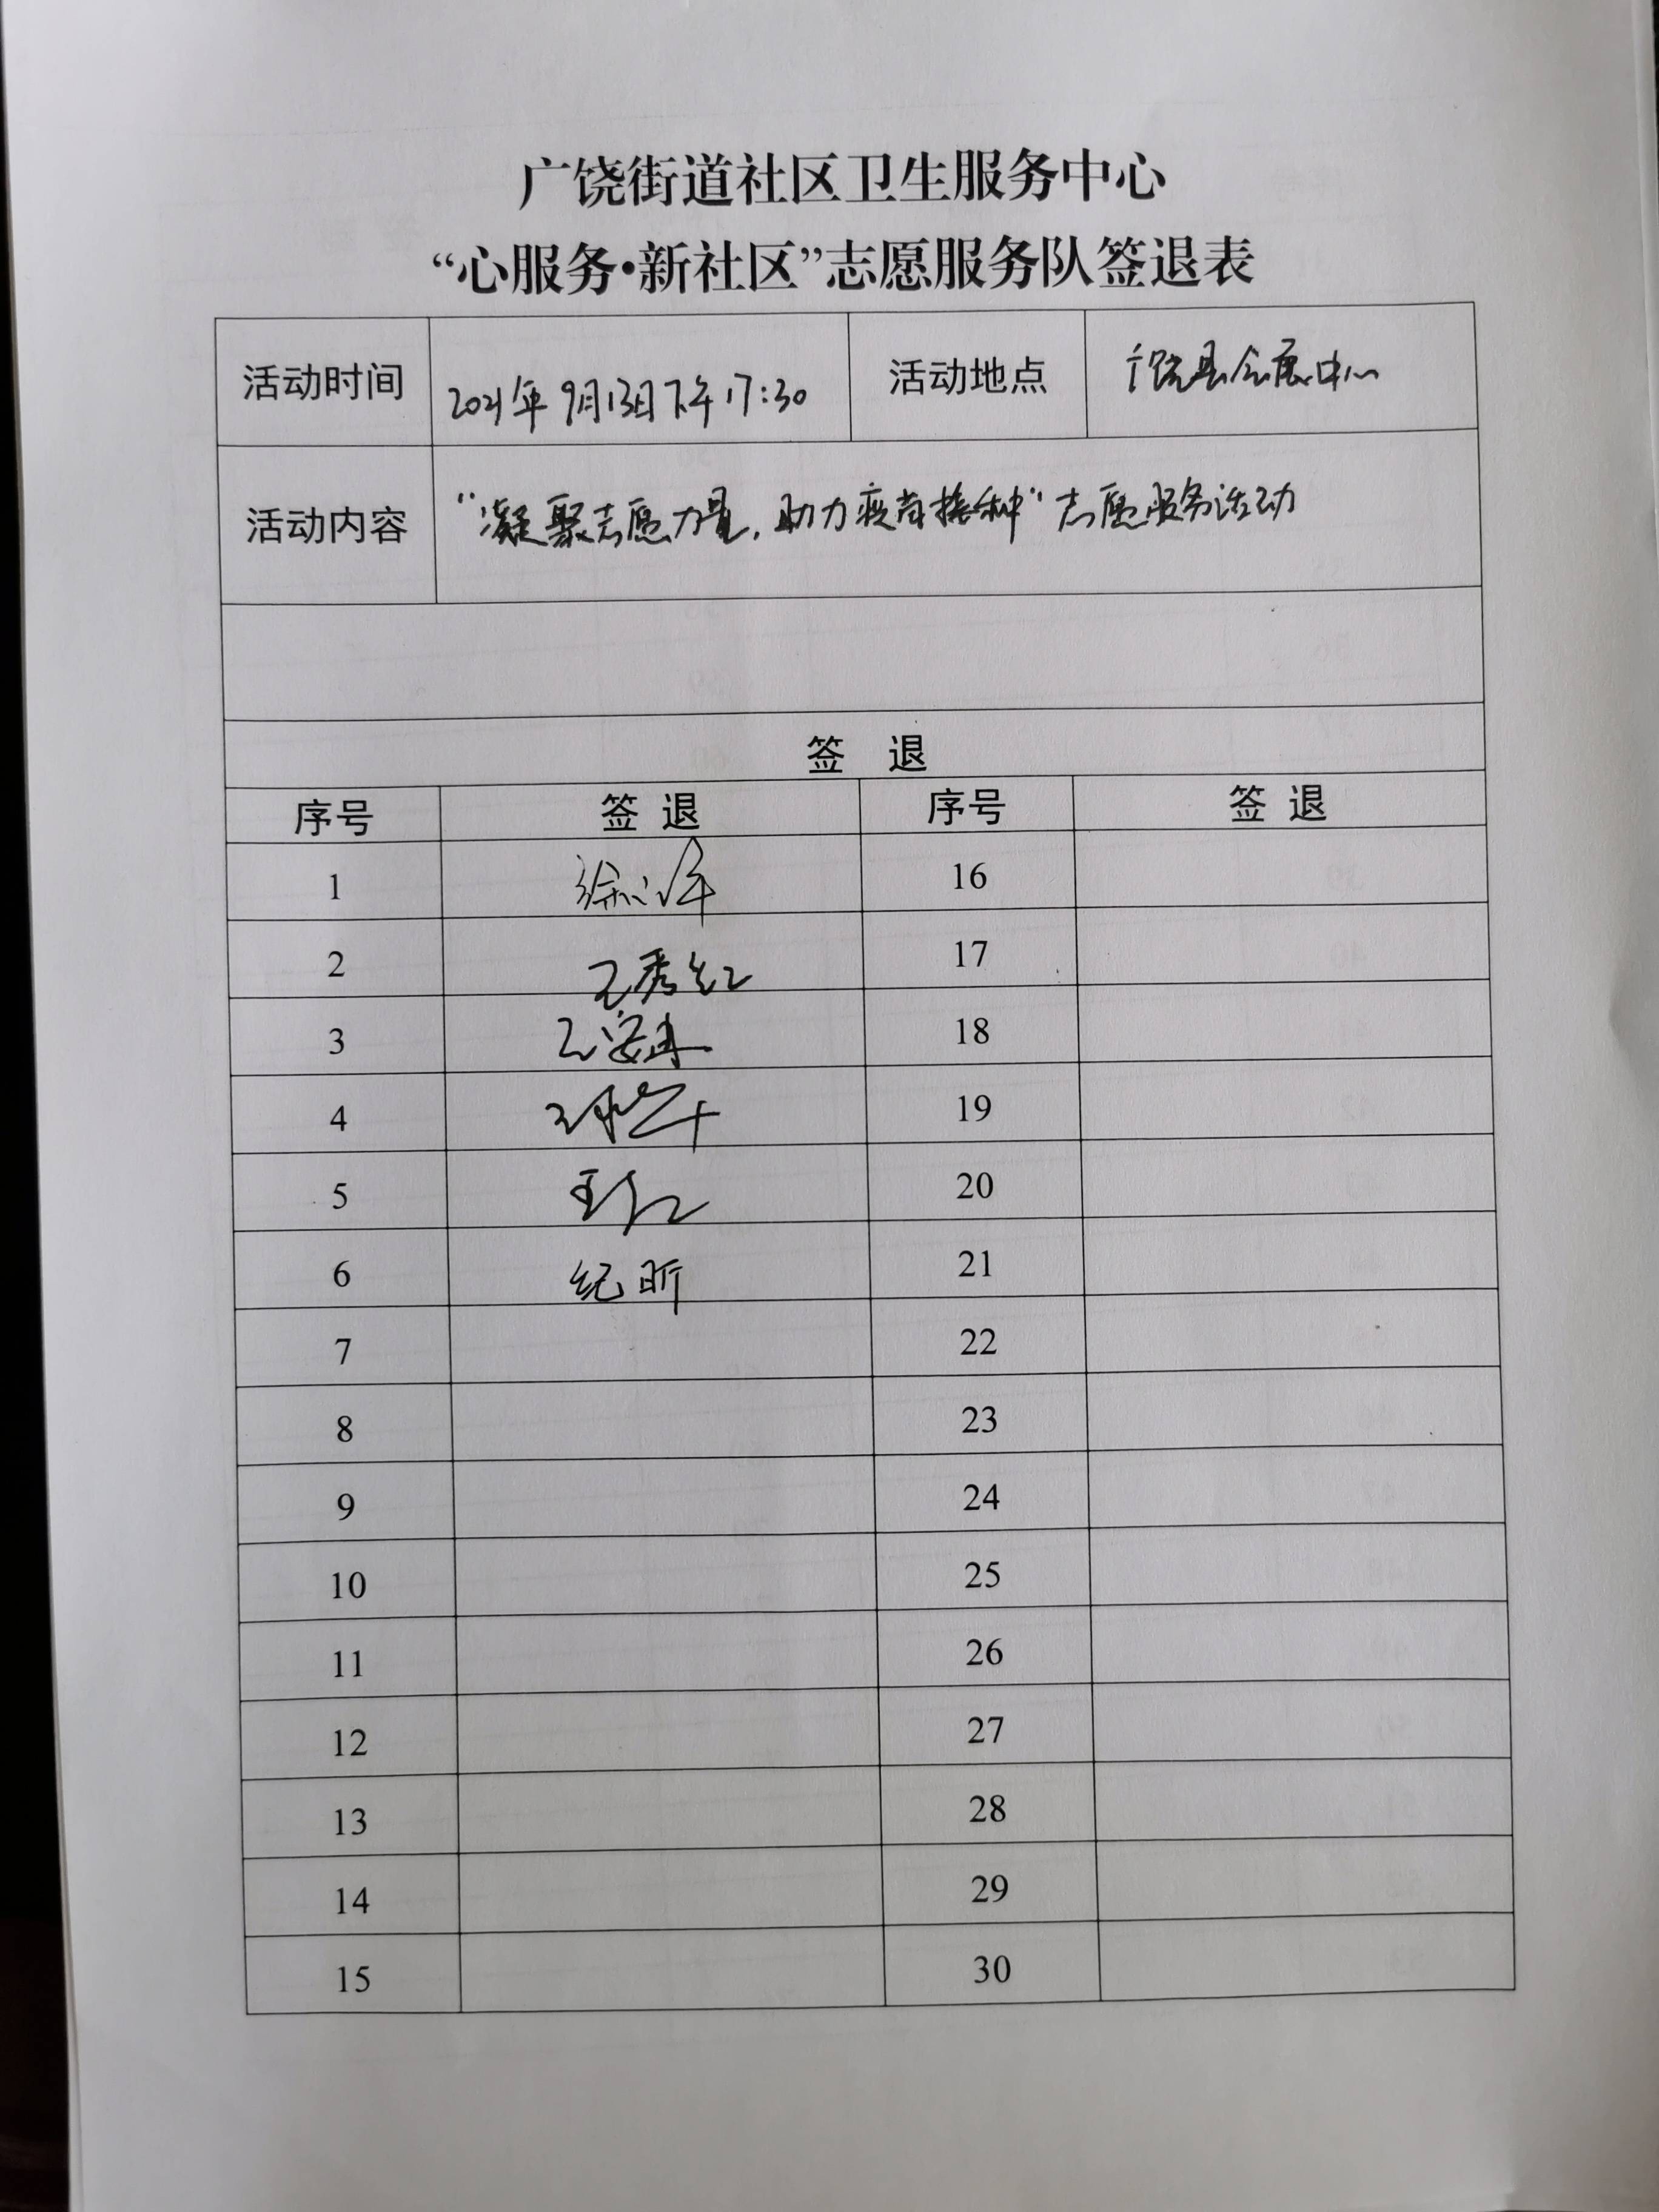 广饶街道社区卫生服务中心
“心服务·新社区”志愿服务队签退表
活动时间 2021年9月13日下午17:30 活动地点 广饶县会展中心
活动内容 “凝聚志愿力量，助力疫苗接种”志愿服务活动
签 退
序号 签 退 序号 签 退
1 16
2 王秀红 17
3 18
4 19
5 20
6 纪昕 21
7 22
8 23
9 24
10 25
11 26
12 27
13 28
14 29
15 30